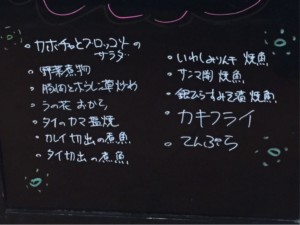 カボチャとブロッコリーの
サラダ
野菜煮物
豚肉とホウレン草炒め
うの花 おから
タイのカマ塩焼
カレイ切出の煮魚
タイ切出の煮魚
いわしみりん干 焼魚
サンマ開 焼魚
銀ひらす 焼魚
カキフライ
てんぷら